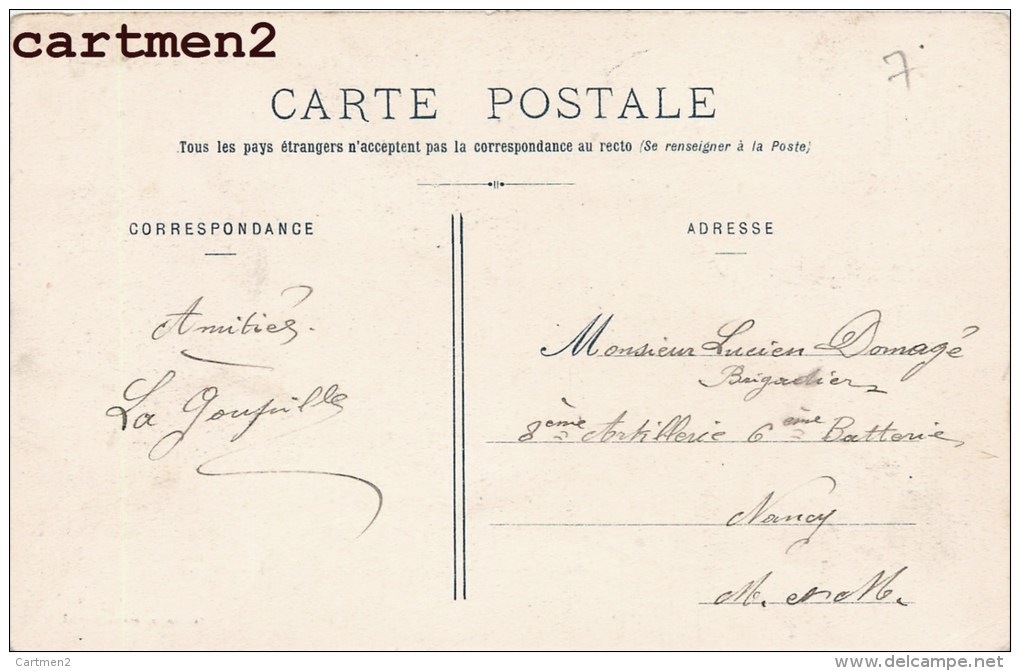 cartmen2
7
CARTE POSTALE
Tous les pays étrangers n'acceptent pas la correspondance au recto (Se renseigner à la Poste)
CORRESPONDANCE
Amitiés.
La Goupille
ADRESSE
Monsieur Lucien Domagé
Brigadier
8ème Artillerie 6ème Batterie
Nancy
M. et M.
Cartmen2
www.delcampe.net